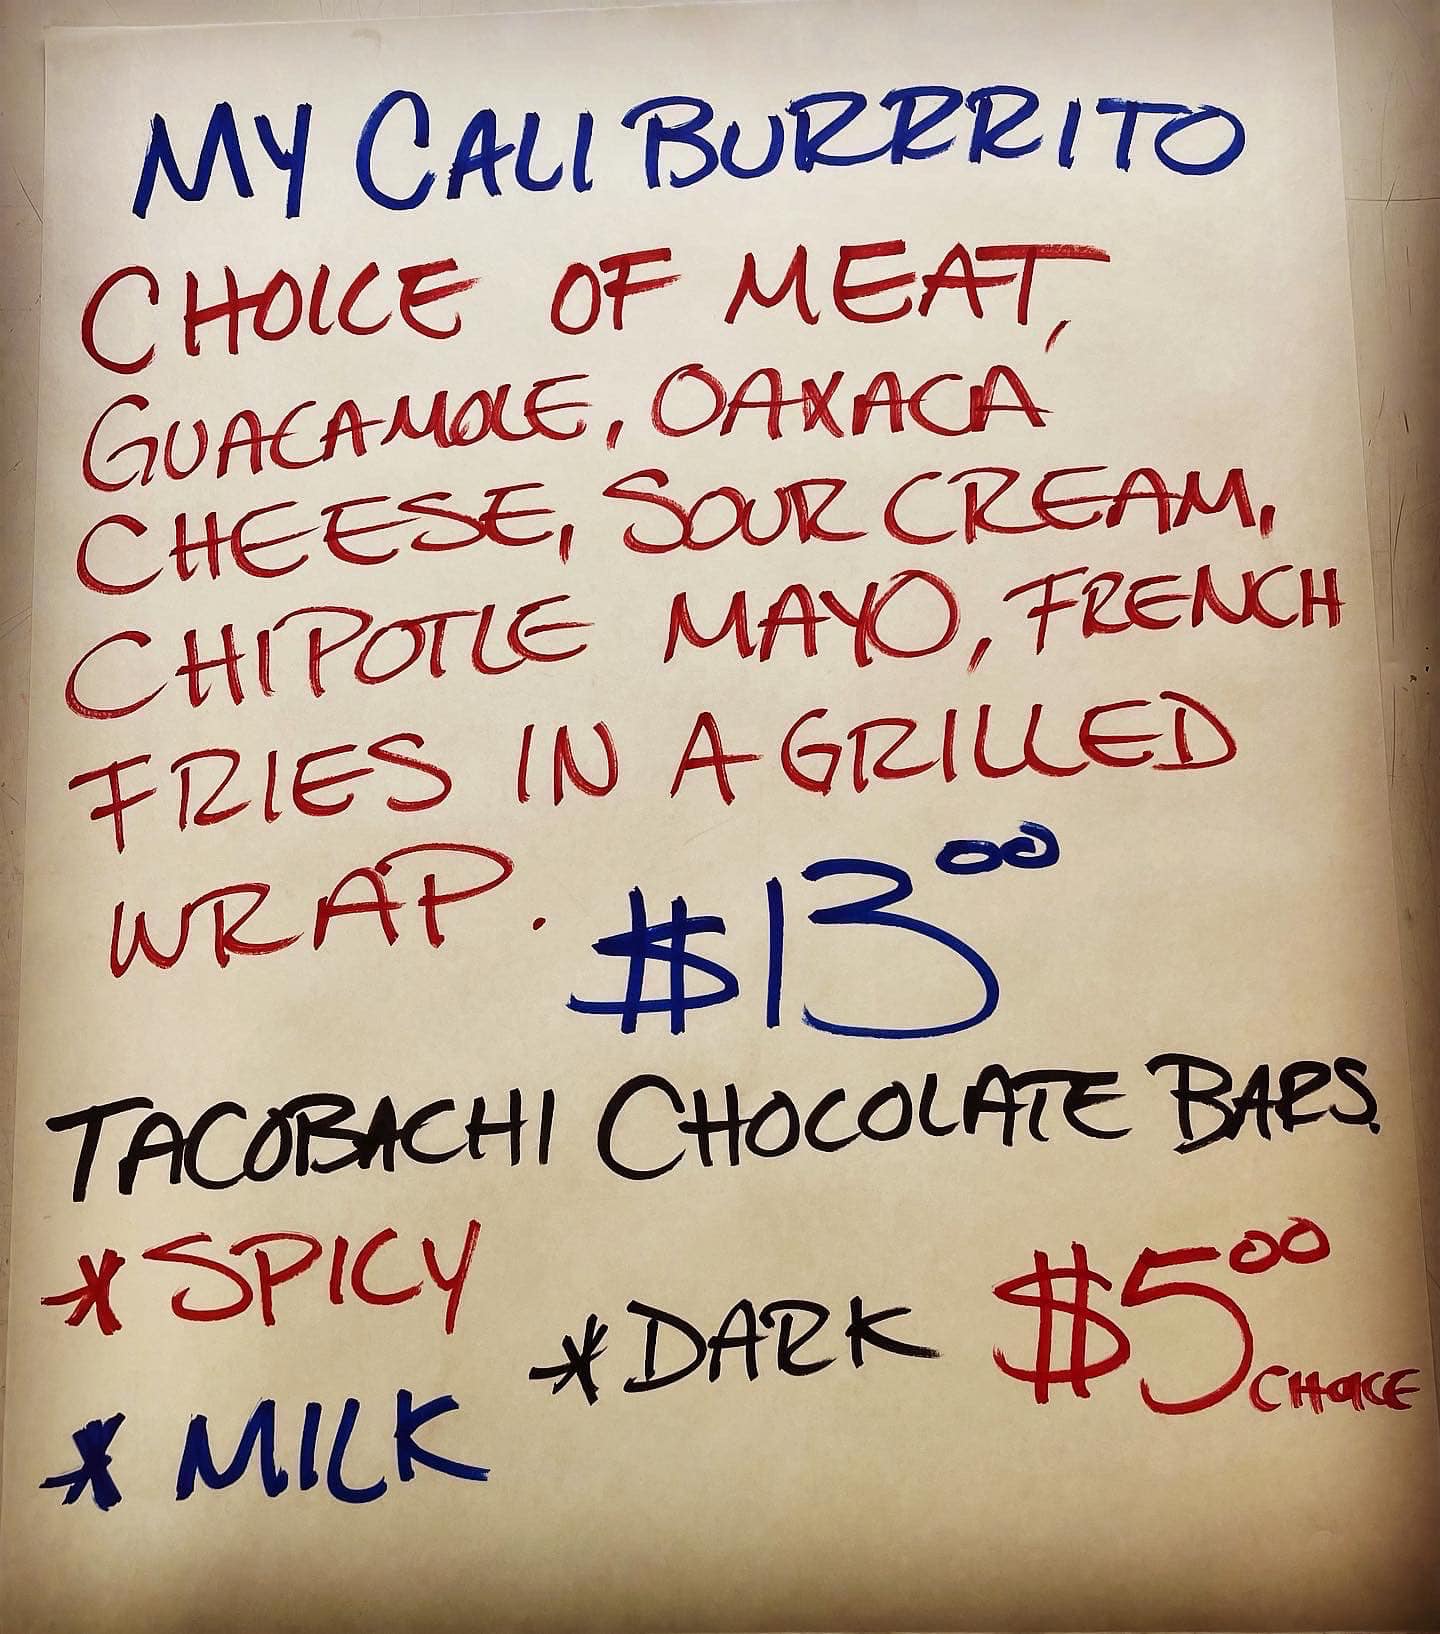 MY CALI BURRRITO
CHOICE OF MEAT,
GUACAMOLE, OAXACA
CHEESE, SOUR CREAM,
CHIPOTLE MAYO, FRENCH
FRIES IN A GRILLED
WRAP. $13.00
TACOBACHI CHOCOLATE BARS.
* SPICY
* DARK $5.00 CHOICE
* MILK